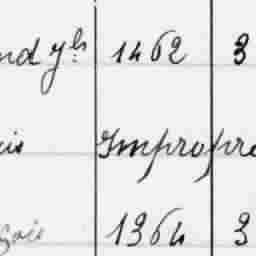 nd yls 1462 3
is Impropre
çois 1364 3